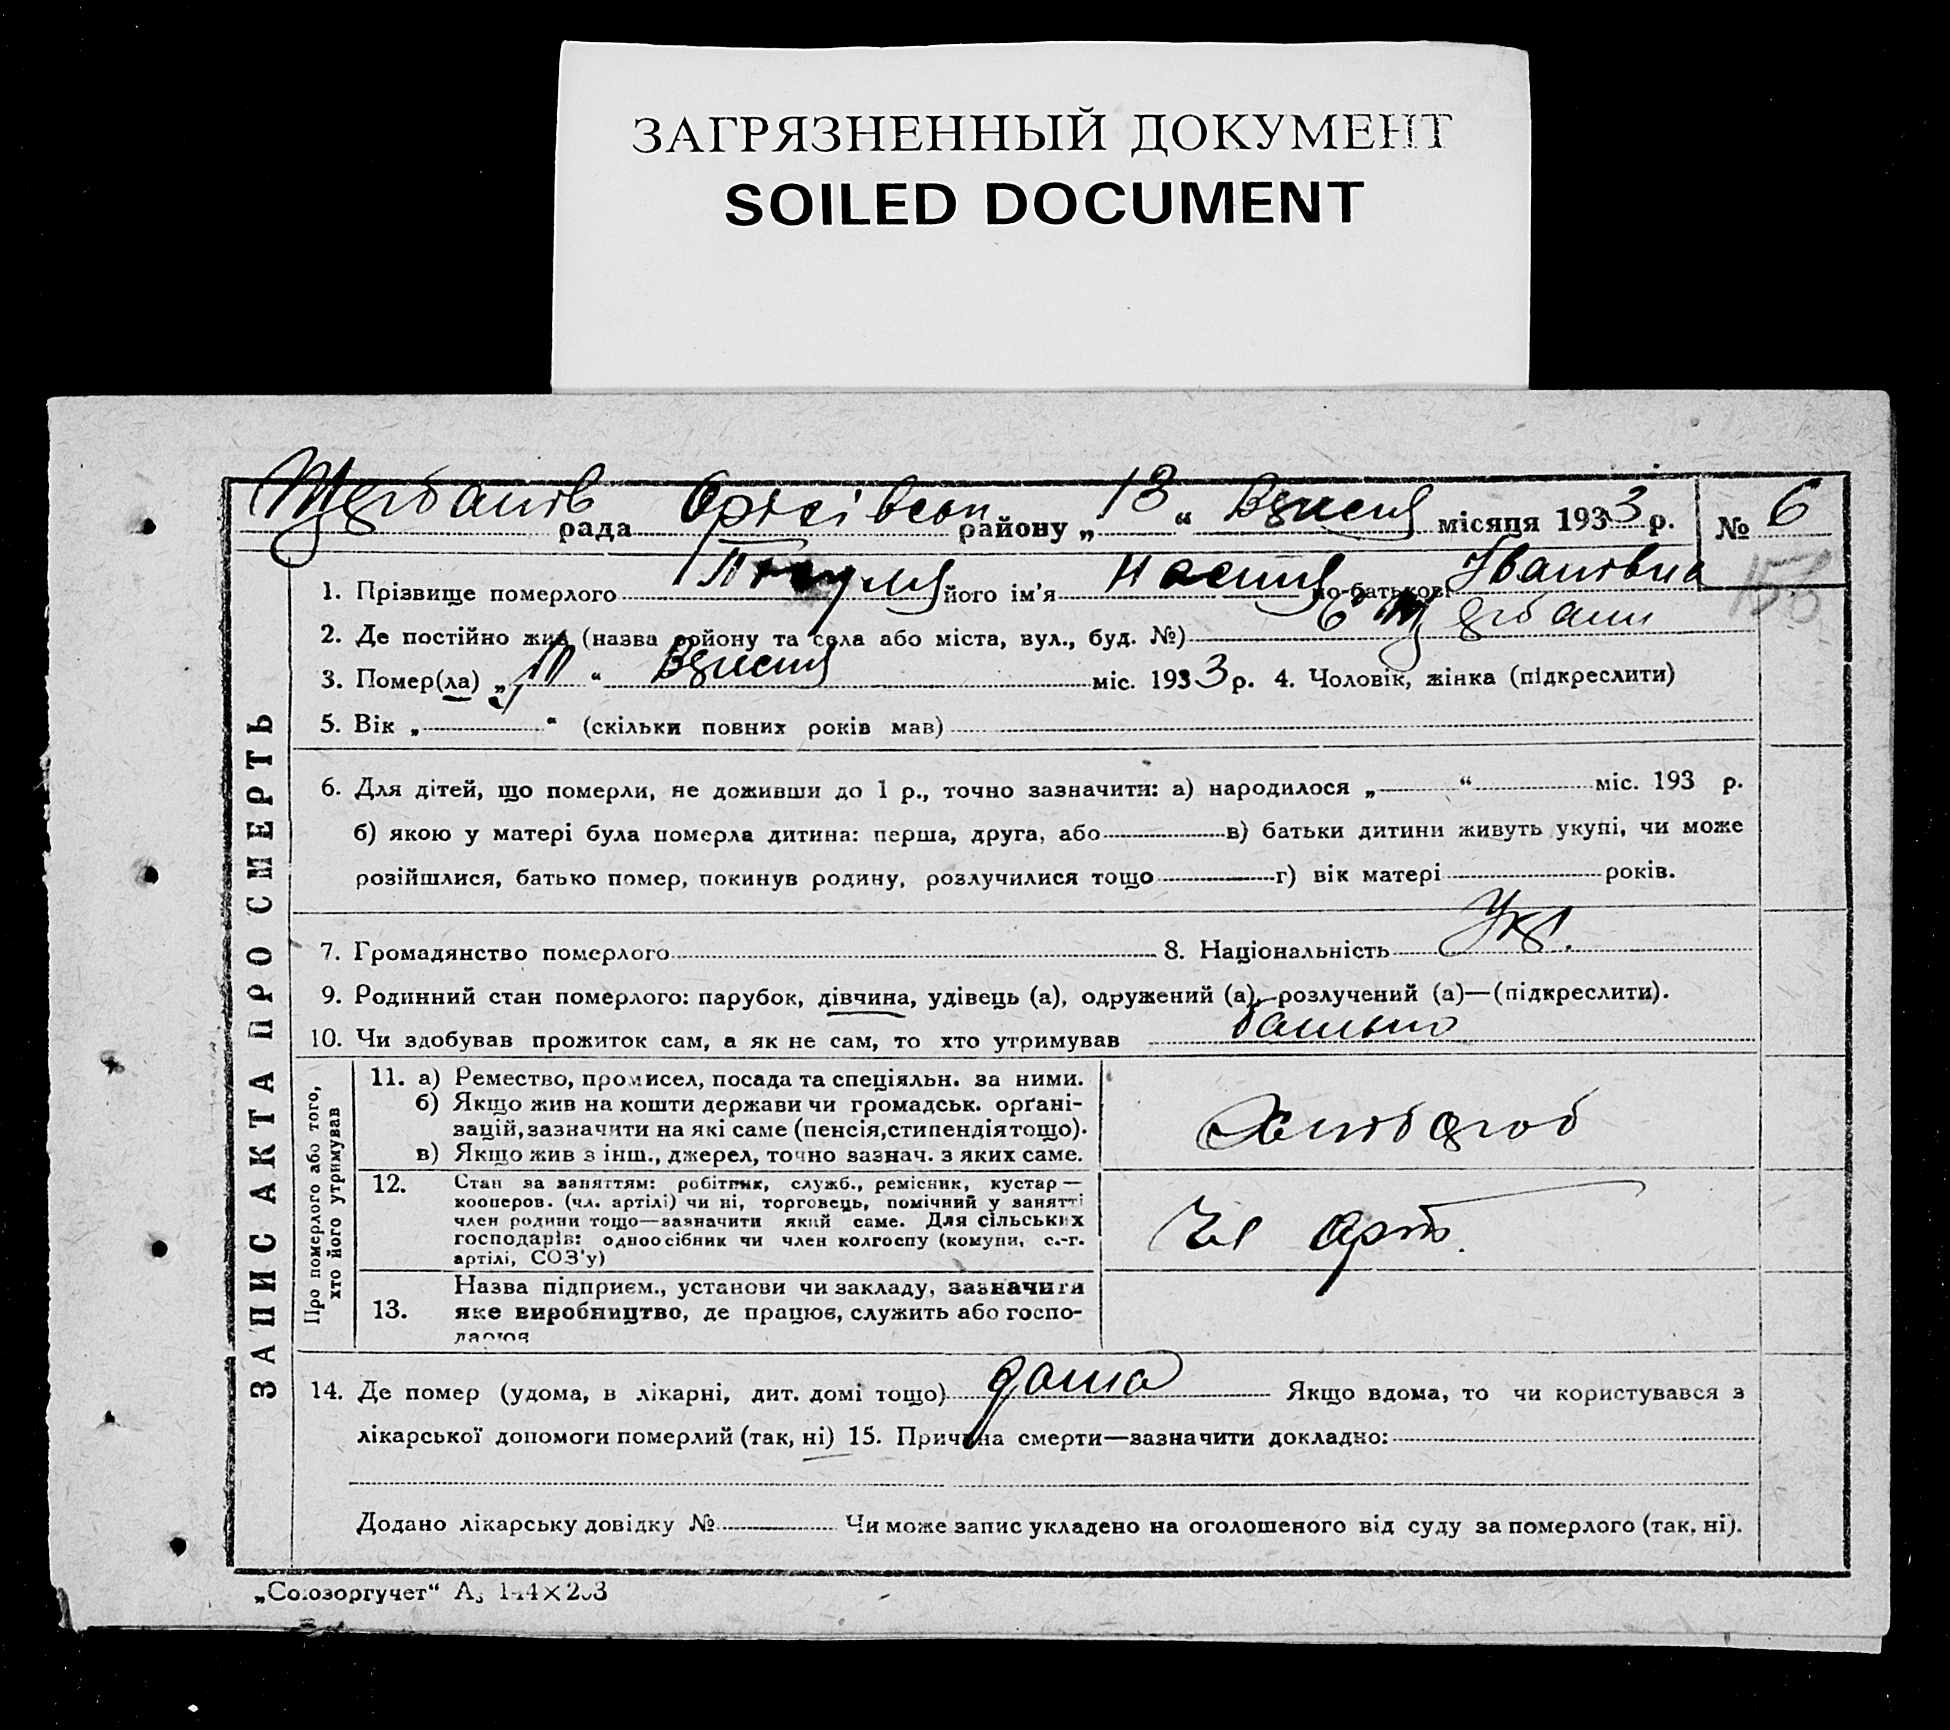 ЗАГРЯЗНЕННЫЙ ДОКУМЕНТ
SOILED DOCUMENT
рада району „13“ Вересня місяця 1933 р. № 6
1. Прізвище померлого його ім'я Настя по-батькові Івановна
156
2. Де постійно жив (назва району та села або міста, вул., буд. №)
3. Помер(ла) „ “ Вересня міс. 1933 р. 4. Чоловік, жінка (підкреслити)
5. Вік „ “ (скільки повних років мав)
6. Для дітей, що померли, не доживши до 1 р., точно зазначити: а) народилося „ “ міс. 193 р.
б) якою у матері була померла дитина: перша, друга, або в) батьки дитини живуть укупі, чи може
розійшлися, батько помер, покинув родину, розлучилися тощо г) вік матері років.
7. Громадянство померлого 8. Національність Укр.
9. Родинний стан померлого: парубок, дівчина, удівець (а), одружений (а), розлучений (а)—(підкреслити).
10. Чи здобував прожиток сам, а як не сам, то хто утримував батько
ЗАПИС АКТА ПРО СМЕРТЬ
Про померлого або того,
хто його утримував
11. а) Ремество, промисел, посада та спеціяльн. за ними.
б) Якщо жив на кошти держави чи громадськ. орґані-
зацій, зазначити на які саме (пенсія, стипендія тощо).
в) Якщо жив з інш., джерел, точно зазнач. з яких саме.
Хлібороб
12. Стан за заняттям: робітник, служб., ремісник, кустар—
кооперов. (чл. артілі) чи ні, торговець, помічний у занятті
член родини тощо—зазначити який саме. Для сільських
господарів: одноосібник чи член колгоспу (комуни, с.-г.
артілі, СОЗ'у)
Чл арт.
13. Назва підприєм., установи чи закладу, зазначити
яке виробництво, де працює, служить або госпо-
дарює
14. Де помер (удома, в лікарні, дит. домі тощо) дома Якщо вдома, то чи користувався з
лікарської допомоги померлий (так, ні) 15. Причина смерти—зазначити докладно:
Додано лікарську довідку № Чи може запис укладено на оголошеного від суду за померлого (так, ні).
„Союзоргучет“